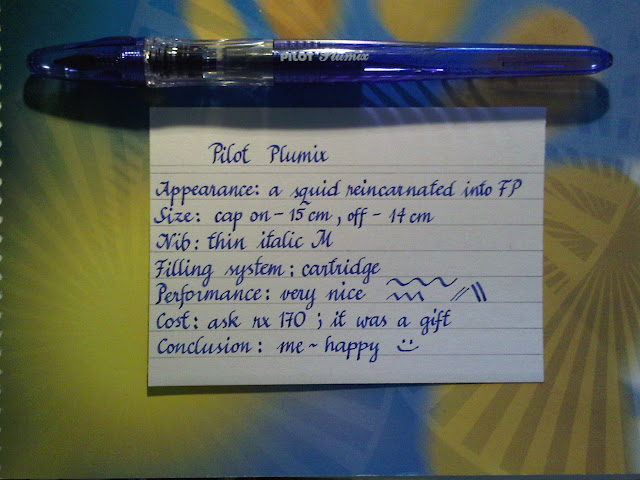 PILOT Plumix
Pilot Plumix
Appearance: a squid reincarnated into FP
Size: cap on - 15 cm, off - 14 cm
Nib: thin italic M
Filling system: cartridge
Performance: very nice
Cost: ask rx 170; it was a gift
Conclusion: me ~ happy :)